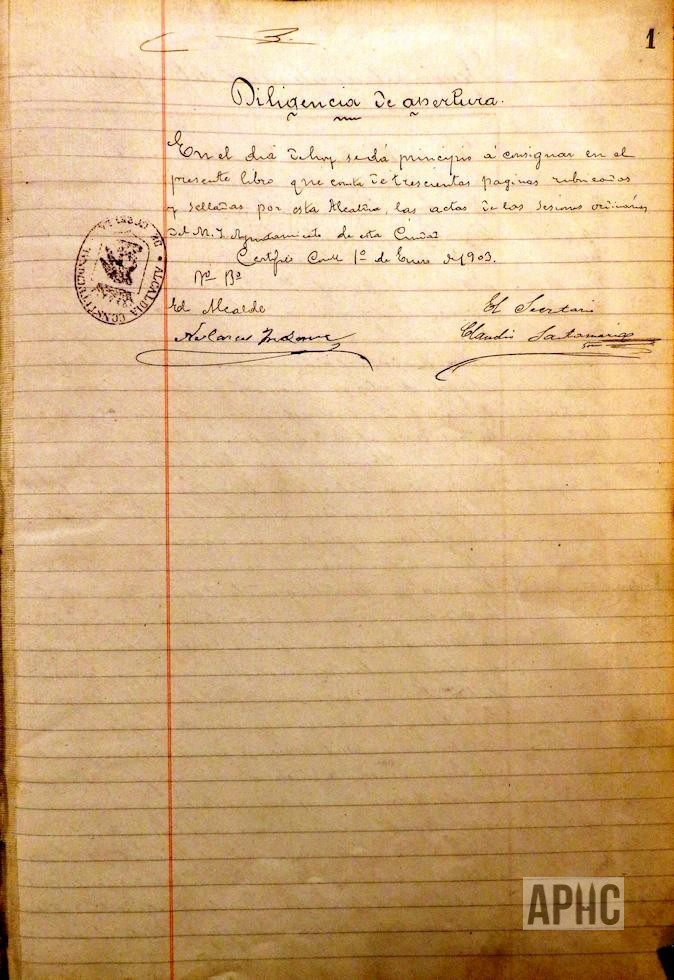 1
Diligencia de apertura.
En el dia de hoy se dá principio á consignar en el
presente libro que consta de trescientas paginas rubricadas
y selladas por esta Alcaldia, las actas de las sesiones ordinarias
del M. I. Ayuntamiento de esta Ciudad
Certifico 1º de Enero de 1903.
Vº Bº
El Alcalde
El Secretario
Claudio Santamaria
ALCALDIA CONSTITUCIONAL
APHC